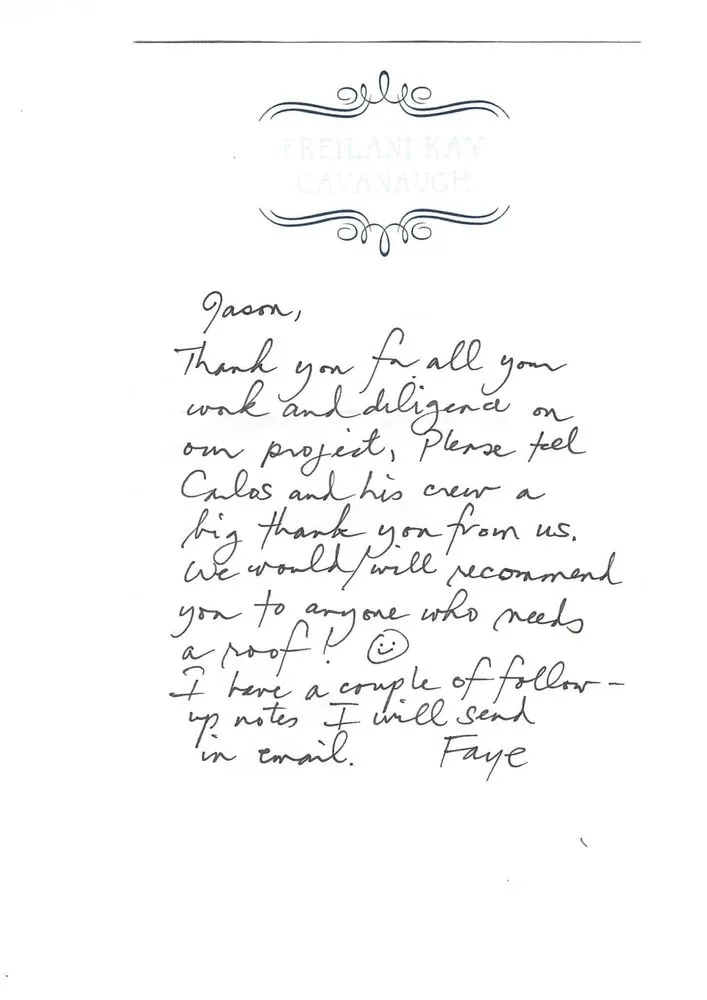 FREILANI KAY
CAVANAUGH
Jason,
Thank you for all your
work and diligence on
our project, Please tell
Carlos and his crew a
big thank you from us.
We would/will recommend
you to anyone who needs
a roof! ☺
I have a couple of follow-
up notes I will send
in email. Faye